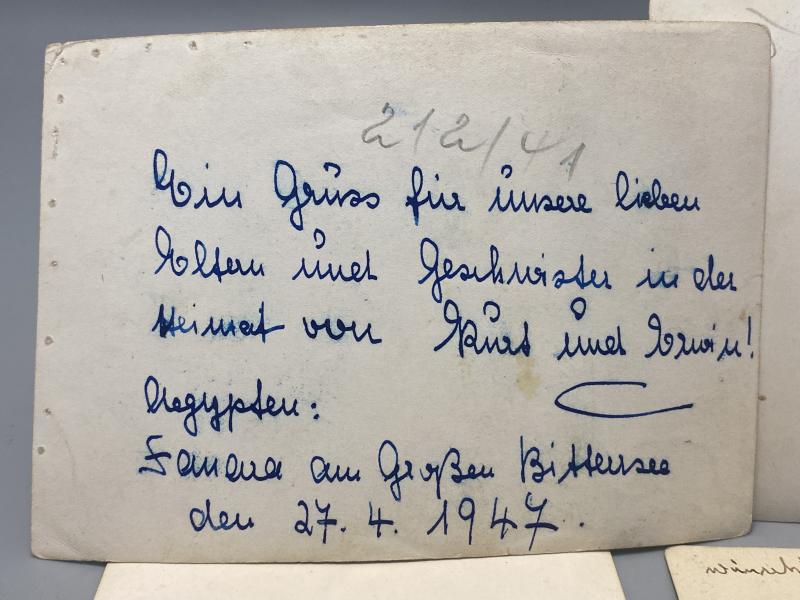 212/41
Ein Grüss für ünsere lieben
Eltern ünd Geschwister in der
Heimat von Kürt ünd Erwin!
Aegypten:
Fanara am Großen Bittersee
den 27. 4. 1947.